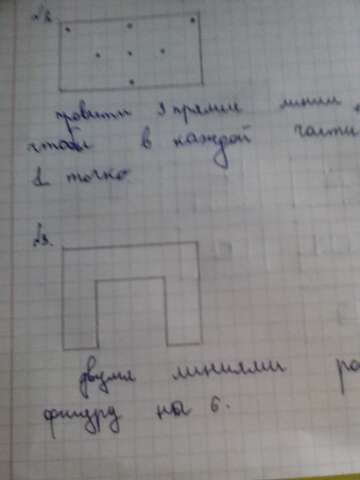 провити 3 прямые линии,
чтобы в каждой части
1 точко
двумя линиями ра
фигуру на 6.